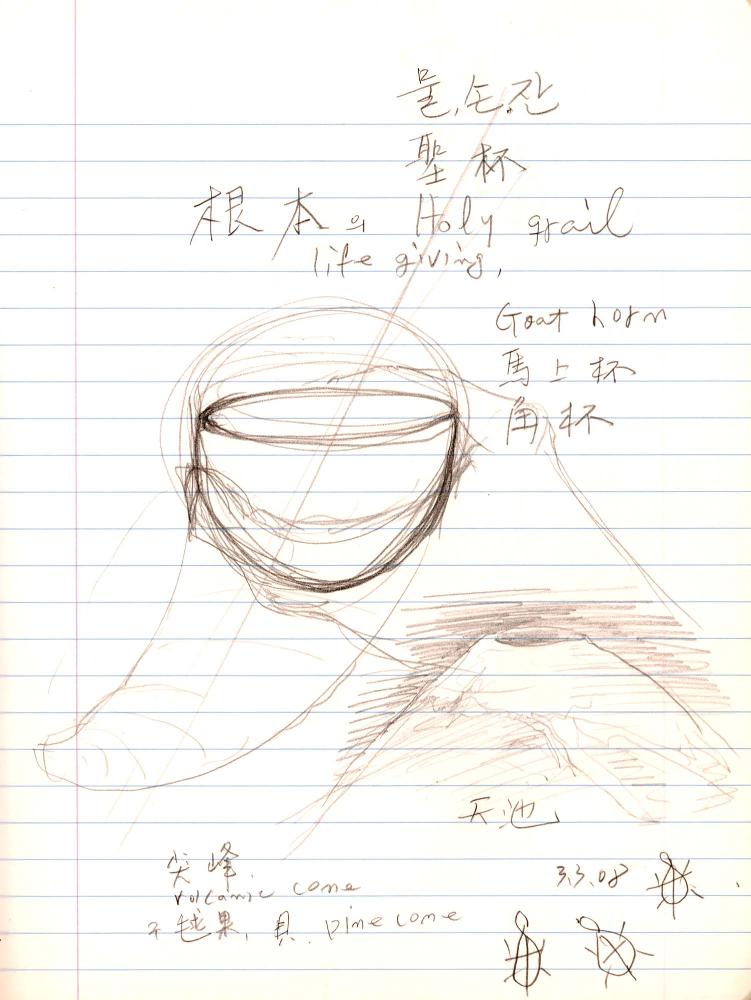 물, 손, 잔
聖杯
根本의 Holy grail
life giving,
Goat horn
馬上杯
角杯
天池
尖峰.
volcanic cone
毬果, 貝. pine cone
3.3.08